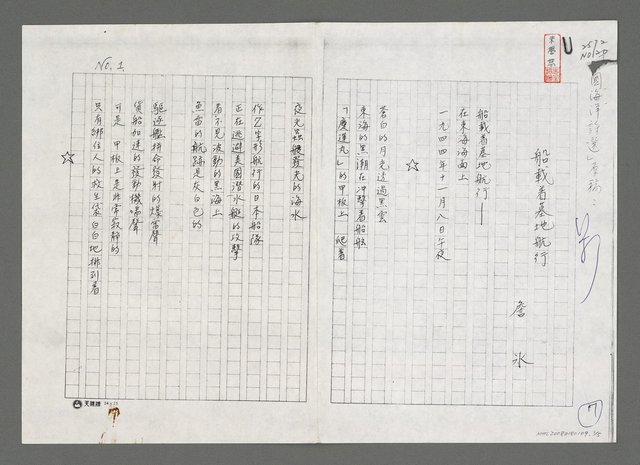 2572
NO/20
國海洋詩選」原稿:
船載着墓地航行
詹冰
船載着墓地航行——
在東海海面上
一九四四年十一月八日午夜
☆
蒼白的月光透過黑雲
東海的黑潮在沖擊着船舷
「慶運丸」的甲板上 爬着
夜光蟲般發光的海水
作乙字形航行的日本船隊
正在逃避美國潛水艇的攻擊
看不見波動的黑海上
魚雷的航跡是灰白色的
驅逐艦拼命發射的爆雷聲
貨船加速的發動機喘聲
可是 甲板上是非常寂靜的
只有綁住人的救生袋白白地排列着
☆
No. 1.
天鵝牌 24x25
7
NMTL20080180109. 3/5